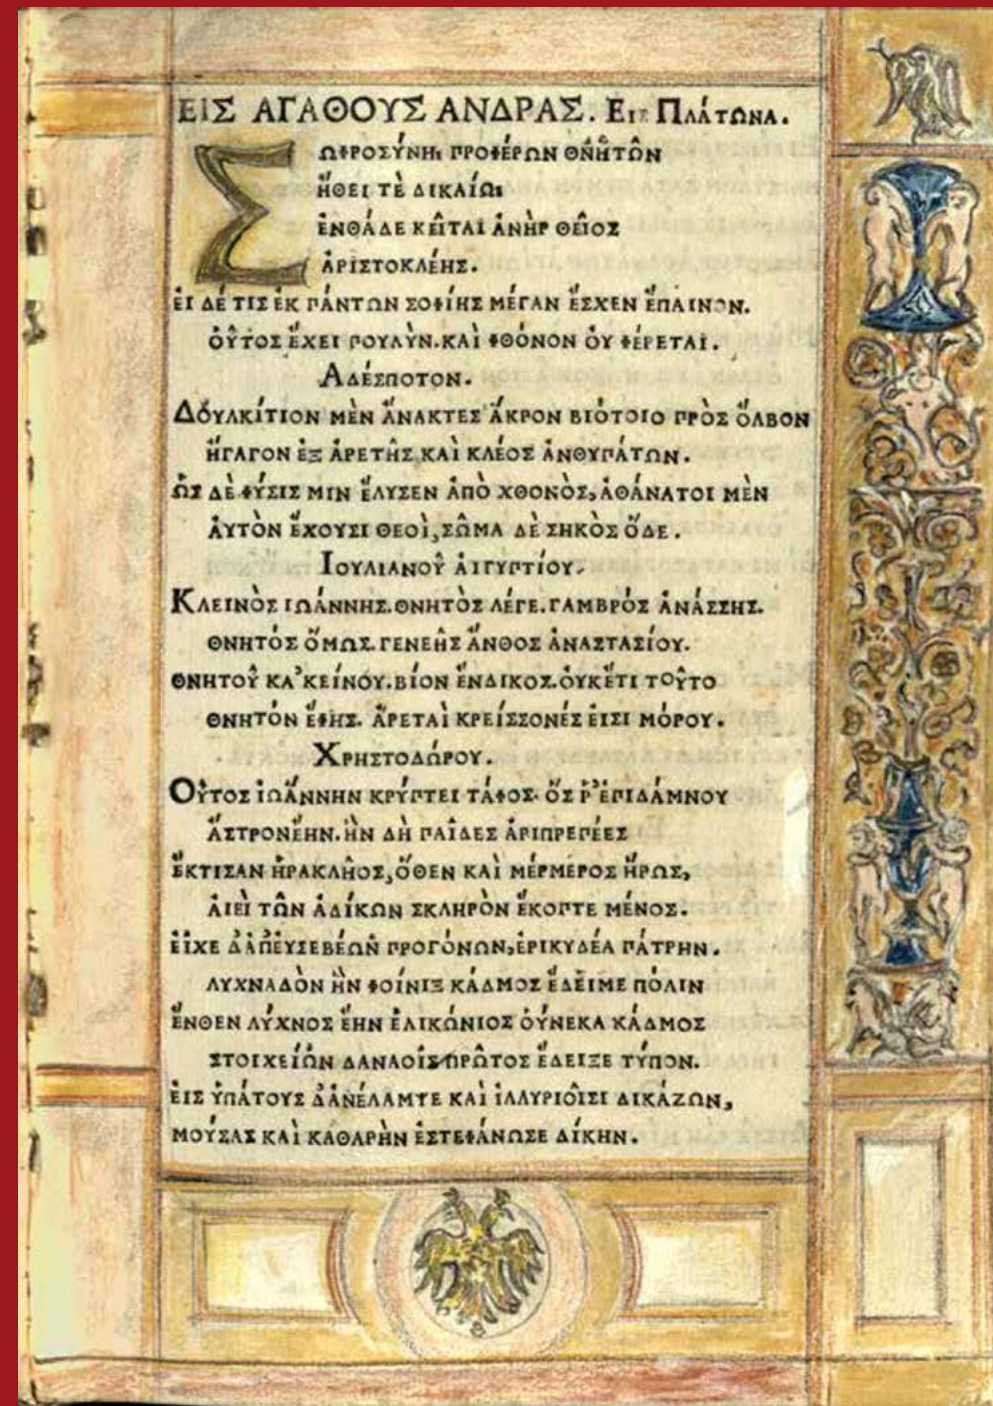 ΕΙΣ ΑΓΑΘΟΥΣ ΑΝΔΡΑΣ. ΕΙΣ ΠΛΆΤΩΝΑ.
ΣΩΦΡΟΣΎΝΗΙ ΠΡΟΦΈΡΩΝ ΘΝΗΤΩ͂Ν
ἬΘΕΙ ΤῈ ΔΙΚΑΊΩΙ
ἘΝΘΆΔΕ ΚΕΙ͂ΤΑΙ ἈΝῊΡ ΘΕΙ͂ΟΣ
ἈΡΙΣΤΟΚΛΈΗΣ.
ἘΙ ΔΈ ΤΙΣ ἘΚ ΠΆΝΤΩΝ ΣΟΦΊΗΣ ΜΈΓΑΝ ἜΣΧΕΝ ἜΠΑΙΝΟΝ.
ΟΥ̓͂ΤΟΣ ἜΧΕΙ ΠΟΥΛΎΝ. ΚΑῚ ΦΘΌΝΟΝ ΟΥ̓ ΦΈΡΕΤΑΙ.
ἈΔΈΣΠΟΤΟΝ.
ΔΟΥΛΚΊΤΙΟΝ ΜῈΝ ἌΝΑΚΤΕΣ ἌΚΡΟΝ ΒΙΌΤΟΙΟ ΠΡῸΣ ὌΛΒΟΝ
ἬΓΑΓΟΝ ἘΞ ἈΡΕΤΗ͂Σ ΚΑῚ ΚΛΈΟΣ ἈΝΘΥΠΆΤΩΝ.
ὩΣ ΔῈ ΦΎΣΙΣ ΜΙΝ ἜΛΥΣΕΝ ἈΠῸ ΧΘΟΝῸΣ, ἈΘΆΝΑΤΟΙ ΜῈΝ
ἈΥΤῸΝ ἜΧΟΥΣΙ ΘΕΟῚ, ΣΩ͂ΜΑ ΔῈ ΣΗΚῸΣ ὍΔΕ.
ἸΟΥΛΙΑΝΟΥ͂ ἈΙΓΥΠΤΊΟΥ.
ΚΛΕΙΝῸΣ ἸΩΆΝΝΗΣ. ΘΝΗΤῸΣ ΛΈΓΕ. ΓΑΜΒΡΌΣ ἈΝΆΣΣΗΣ.
ΘΝΗΤΌΣ ὍΜΩΣ. ΓΕΝΕΗ͂Σ ἌΝΘΟΣ ἈΝΑΣΤΑΣΊΟΥ.
ΘΝΗΤΟΥ͂ ΚΑ'ΚΕΊΝΟΥ. ΒΊΟΝ ἜΝΔΙΚΟΣ. ΟΥ̓ΚΈΤΙ ΤΟΥ͂ΤΟ
ΘΝΗΤΌΝ ἜΦΗΣ. ἈΡΕΤΑῚ ΚΡΕΊΣΣΟΝΈΣ ἘΙΣΙ ΜΌΡΟΥ.
ΧΡΗΣΤΟΔΏΡΟΥ.
ΟΥ̓͂ΤΟΣ ἸΩΆΝΝΗΝ ΚΡΎΠΤΕΙ ΤΆΦΟΣ. ὍΣ Ῥ' ἘΠΙΔΆΜΝΟΥ
ἌΣΤΡΟΝ ἜΗΝ. ἫΝ ΔῊ ΠΑΙ͂ΔΕΣ ἈΡΙΠΡΕΠΈΕΣ
ἜΚΤΙΣΑΝ ἩΡΑΚΛΗ͂ΟΣ, ὍΘΕΝ ΚΑῚ ΜΈΡΜΕΡΟΣ ἭΡΩΣ,
ἈΙΕῚ ΤΩ͂Ν ἈΔΊΚΩΝ ΣΚΛΗΡῸΝ ἜΚΟΠΤΕ ΜΈΝΟΣ.
ἘΙ͂ΧΕ Δ' ἈΠ' ἘΥΣΕΒΈΩΝ ΠΡΟΓΌΝΩΝ, ἘΡΙΚΥΔΈΑ ΠΆΤΡΗΝ.
ΛΥΧΝΑΔῸΝ ἫΝ ΦΟΊΝΙΞ ΚΆΔΜΟΣ ἜΔΕΙΜΕ ΠΌΛΙΝ
ἜΝΘΕΝ ΛΎΧΝΟΣ ἜΗΝ ἙΛΙΚΏΝΙΟΣ ΟΎΝΕΚΑ ΚΆΔΜΟΣ
ΣΤΟΙΧΕΊΩΝ ΔΑΝΑΟΙ͂Σ ΠΡΩ͂ΤΟΣ ἜΔΕΙΞΕ ΤΎΠΟΝ.
ἘΙΣ ὙΠΆΤΟΥΣ Δ' ἈΝΈΛΑΜΨΕ ΚΑῚ ἸΛΛΥΡΙΟΙ͂ΣΙ ΔΙΚΆΖΩΝ,
ΜΟΎΣΑΣ ΚΑῚ ΚΑΘΑΡῊΝ ἘΣΤΕΦΆΝΩΣΕ ΔΊΚΗΝ.